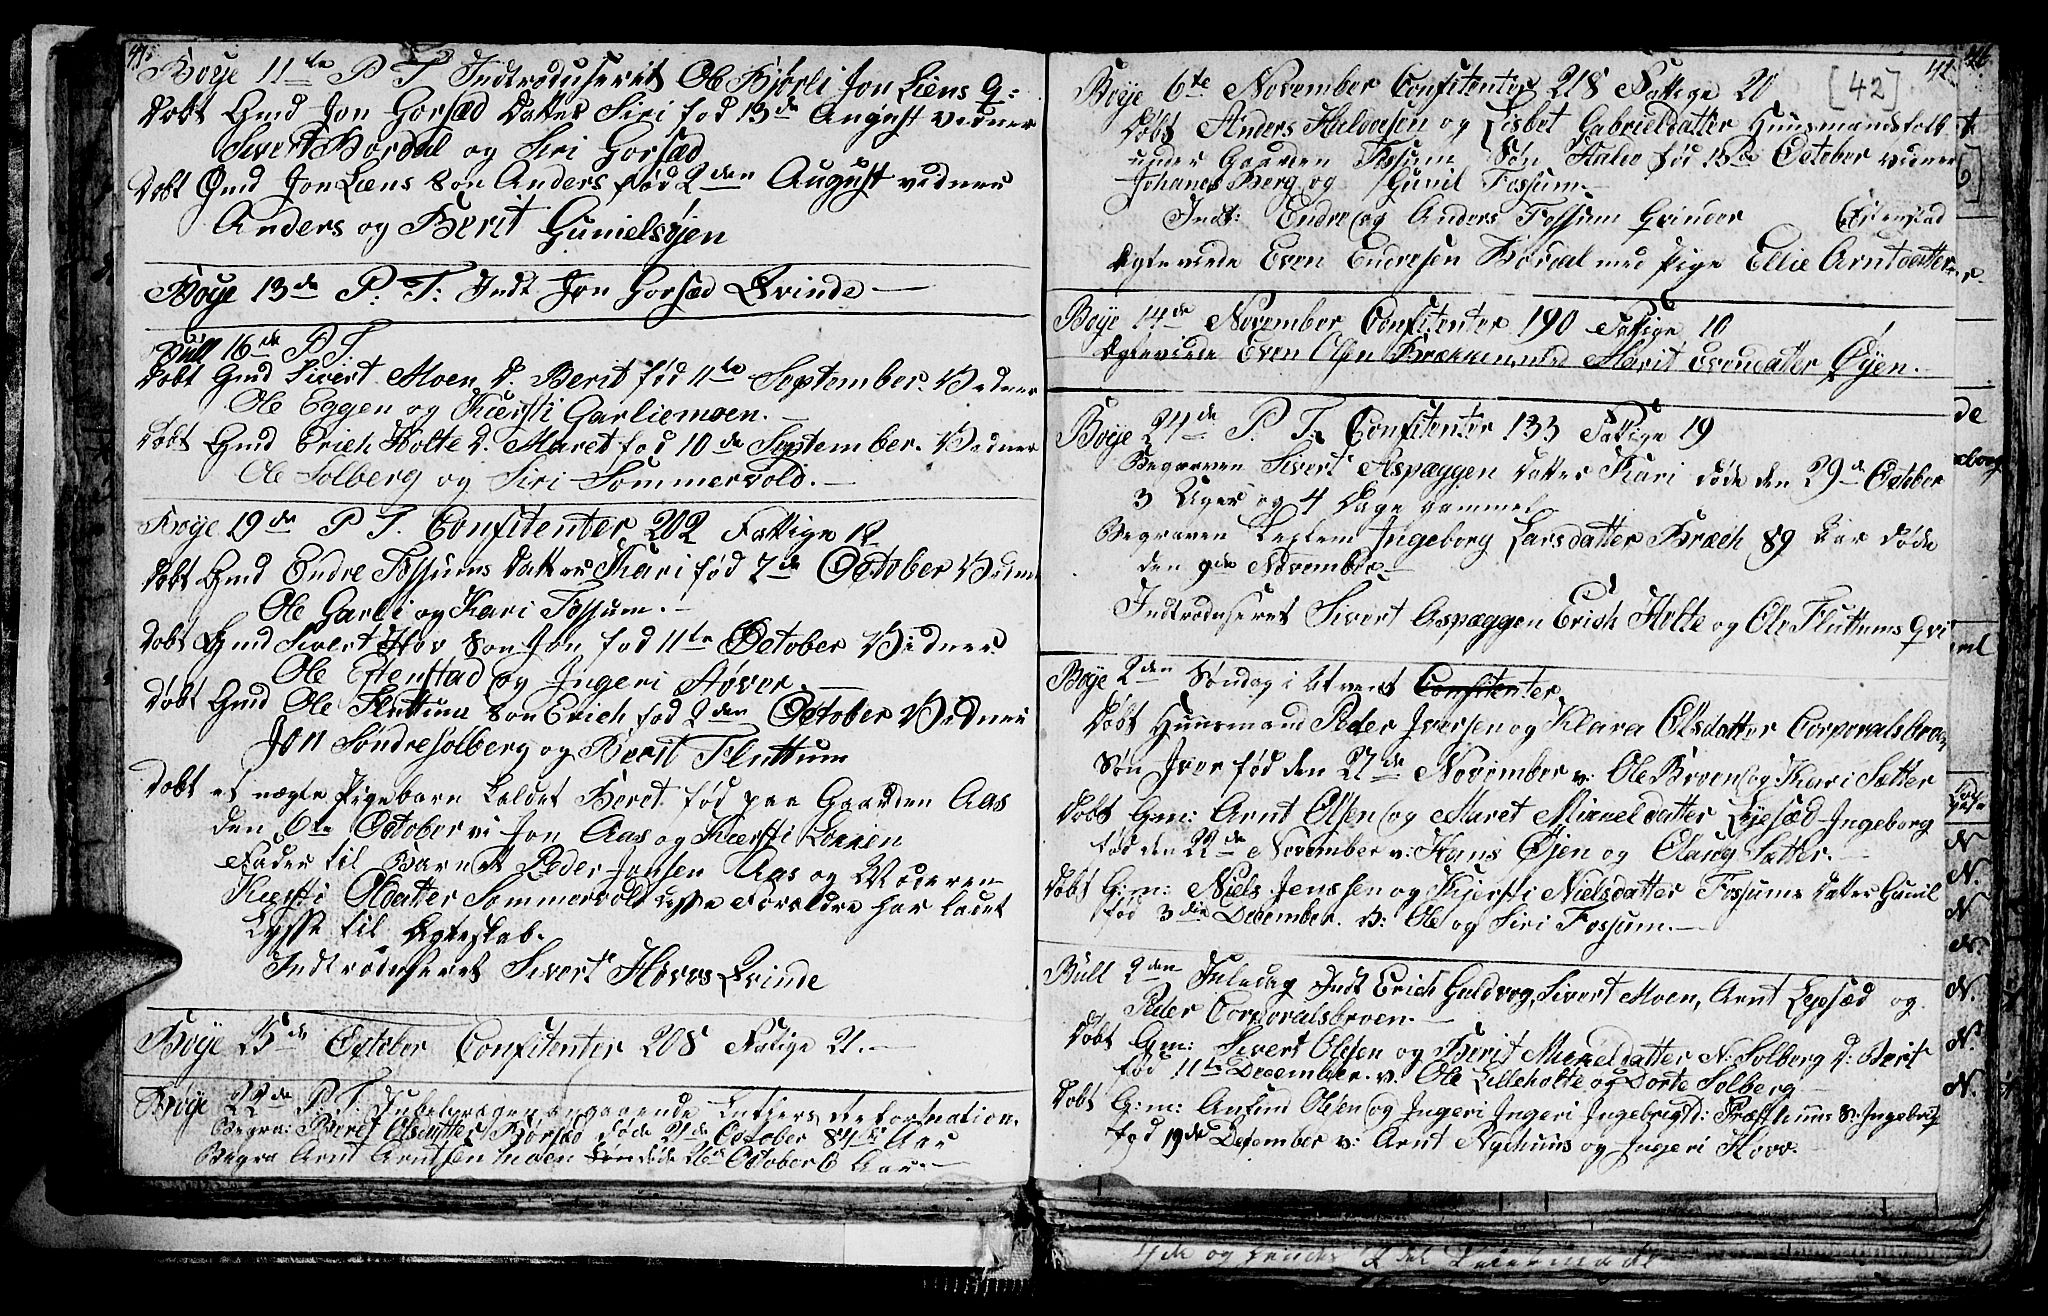 41.
Boye 11te P T. Indtroduserit Ole Biörli Jon Liens Q:
Döbt Gmd Jon Gorsæd Datter Siri fod 13de August vedner
Sivert Bordal og Siri Gorsæd
Döbt Gmd Jon Liens Son Anders född 2den August vedner
Anders og Berit Gunielsöjen
Boye 13de P: T: Indt Jon Gorsæd Qvinde
Bull 16de P T.
Döbt Gmd Sivert Moen D. Berit fød 11te September. Vedner
Ole Eggen og Kiersti Garliemoen.
Döbt Gmd Erich Holte D. Maret fod 10de September. Vedner
Ole Solberg og Siri Sommervold.
Boye 19de P T. Confitenter 202 Fattige 12
Döbt Gmd Endre Fossums Datter Kari fød 7de October Vedner
Ole Garli og Kari Fossum.
Döbt Gmd Sivert Hov Son Jon fod 11te October Vidner
Ole Estenstad og Ingeri Hover.
Döbt Gmd Ole Fluttum Son Erich fod 2den October Vidner
Jon Söndre Solberg og Berit Fluttum
Döbt et uægte Pigebarn kaldet Beret fød paa Gaarden Aas
den 6te October vi Jon Aas og Kiersti
Fader til Barnet Peder Jonsen Aas og Moderen
Kiersti Olsdatter Sommervold disse Forældre har ladet
Lysse til Ægteskab.
Indtroduseret Sivert Hovos Qvinde
Boye 25de October Confitenter 208 Fattige 21.
Boye P. T. Jubelprægen angaaende Luthers Reformation.
Begra: Berit Olsdatter Börsæd döde 21de October 84 1/2 Aar
Begra Arnt Arntsen Moen döde 26de October 6 Aar.
42
[42]
Boye 6te November Confitenter 218 Fattige 20
Döbt Anders Halvorsen og Lisbet Gabrieldatter Huusmandsfolk
under Gaarden Fossum Søn Halvo fød 13de October vidner
Johanes Berg og Gunil Fossum.
Indt: Endre og Anders Fossum Qvinder Estenstad
Ægteviede Even Endresen Bordal med Pige Ellie Arntdatter
Boye 14de November Confitenter 190 Fattige 10
Ægteviede Even Olsen Brækken med Marit Evendatter Øyen.
Boye 24de P. T. Confitenter 133 Fattige 19
Begraven Sivert Aspæggen Datter Kari døde den 29de October
3 Uger og 4 Dage gammel
Begraven Leglem Ingeborg Larsdatter Bræch 89 Aar døde
den 9de November
Indtroduseret Sivert Aspæggen Erich Holte og Ole Fluttums Qvi
Boye 2den Søndag i Advent Confitenter
Döbt Huusmand Peder Iversen og Klara Olsdatter Corporalsbroen
Søn Iver fød den 27de November v: Ole Broen og Kari Sætter
Döbt G:m: Arnt Olsen og Maret Mikkeldatter Lysæd Ingeborg
fød den 22de November v: Hans Øjen og Olaug Sætter.
Döbt G:m: Niels Jenssen og Kjersti Nielsdatter Fossums Datter Gunil
fød 3die December. V: Ole og Siri Fossum.
Bull 2den Juledag Indt Erich Guldvog, Sivert Moen, Arnt Lysæd og
Peder Corporalsbroen.
Döbt G:m: Sivert Olsen og Berit Mikkeldatter N: Solberg D: Berit
fød 11te December. v. Ole Lilleholte og Dorte Solberg
Döbt G:m: Amund Olsen og Ingeri Ingeri Ingebrigtd: Præsthuus S: Ingebrigt
fød 19de December v: Arnt Nyhuus og Ingeri Hovo.